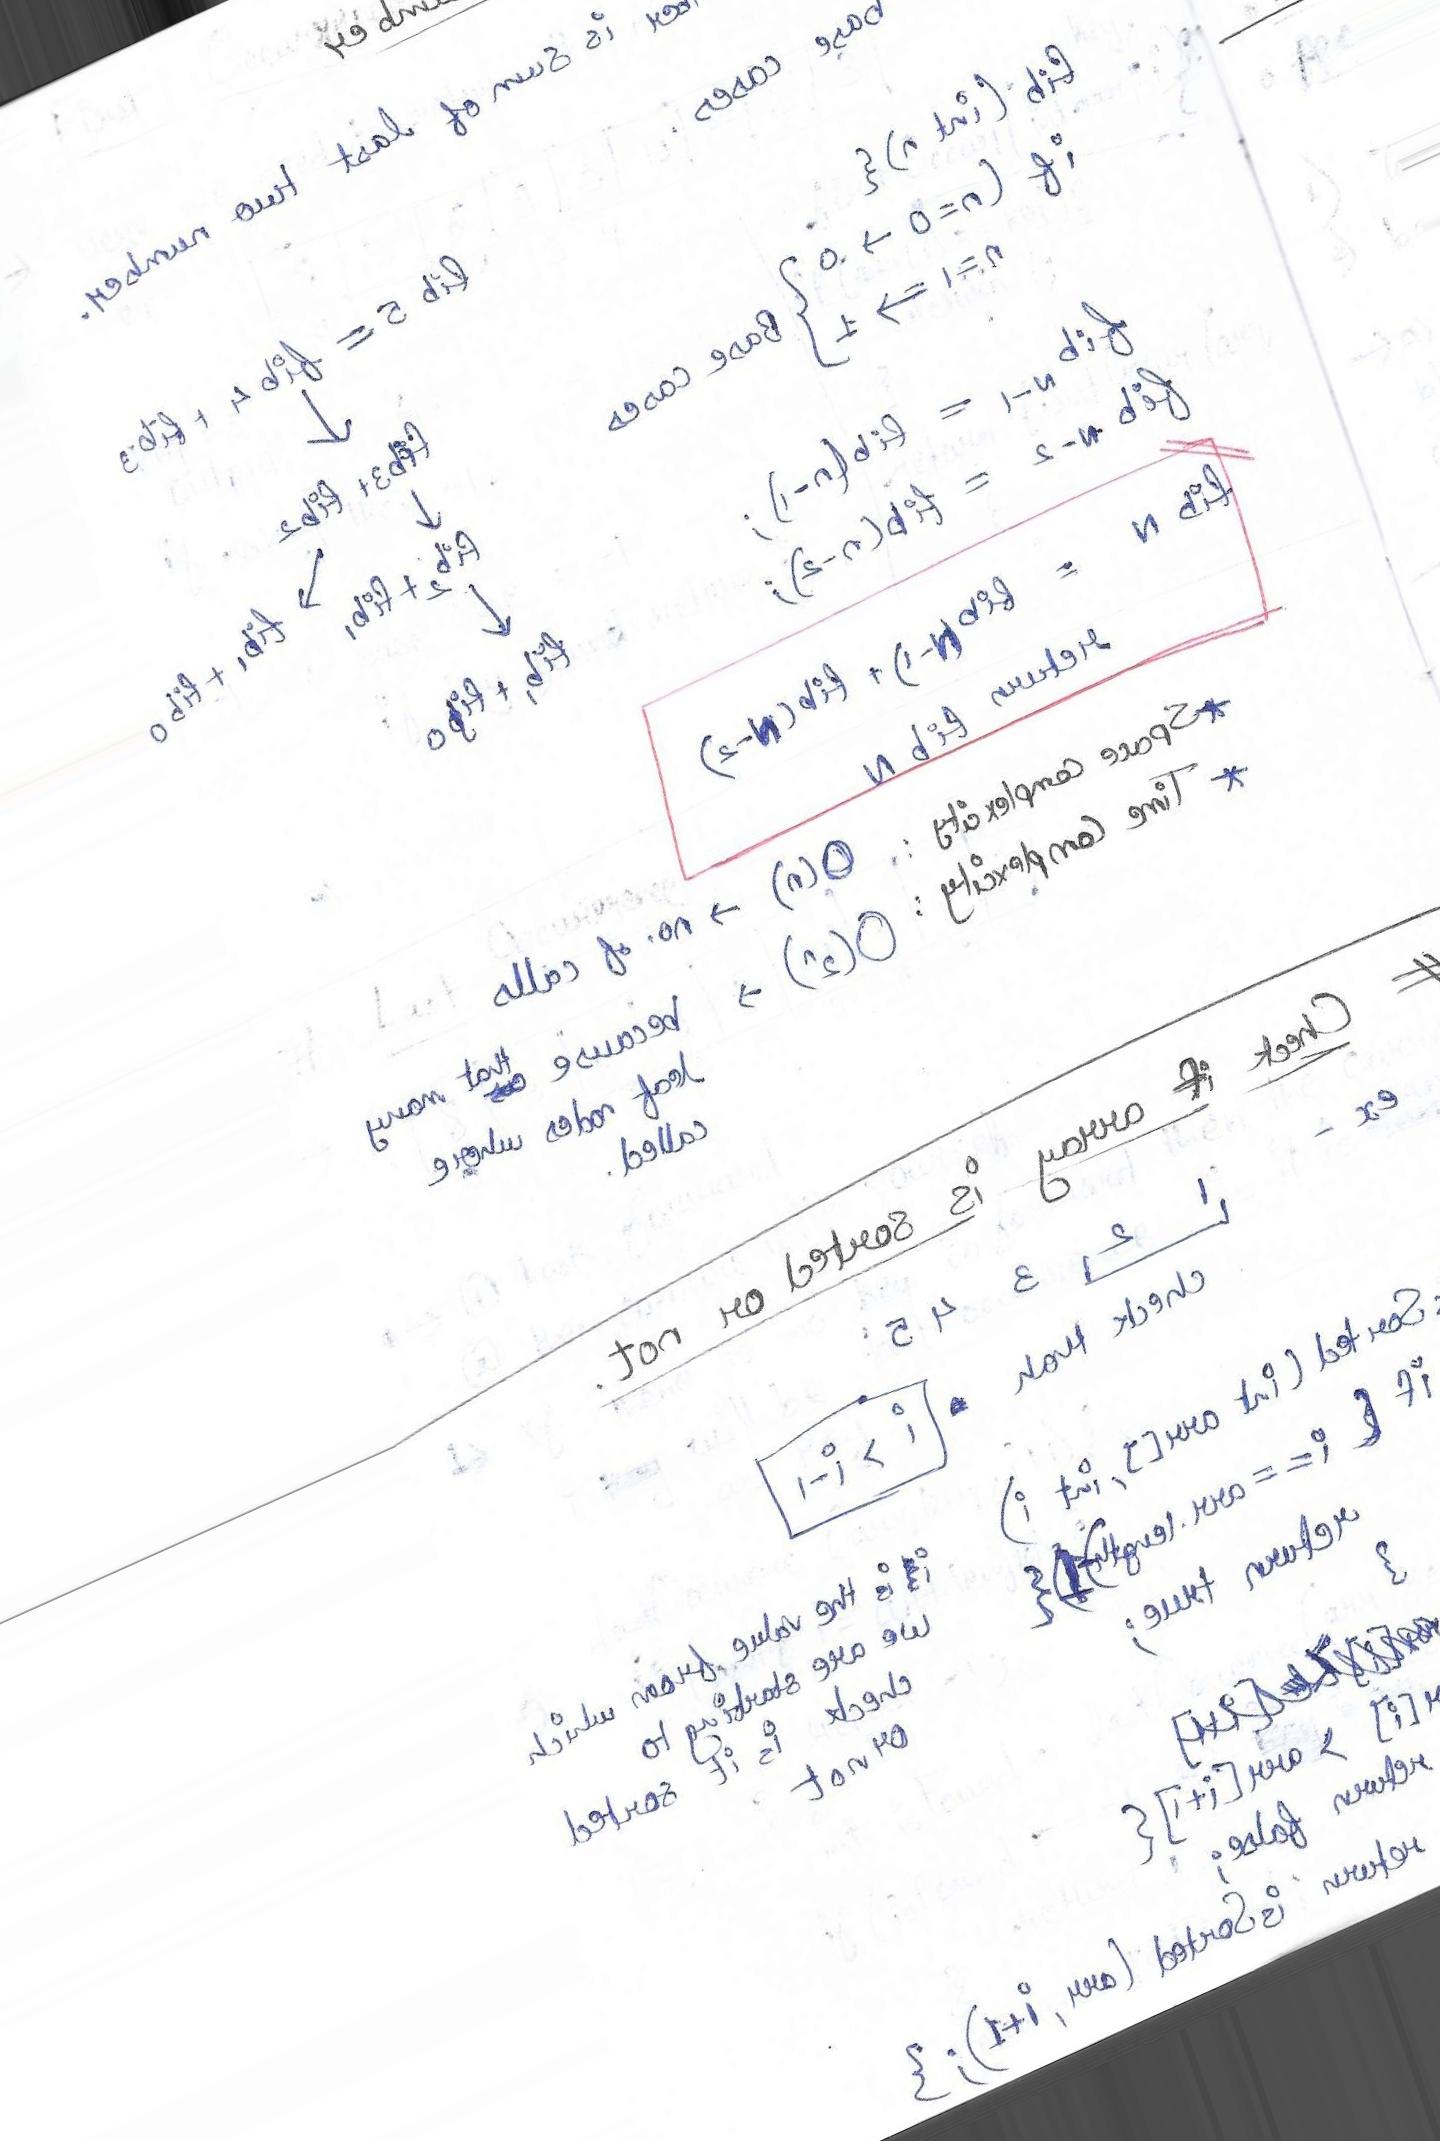 number
is sum of last two number.
base cases.
fib (int n) {
if (n=0 → 0
n=1 => 1
} Base cases
fib n-1 = fib(n-1);
fib n-2 = fib(n-2);
fib N = fib(N-1) + fib(N-2)
return fib N
fib 5 = fib 4 + fib3
fib3 + fib2
fib2 + fib1
fib1 + fib0
fib1 + fib0
* Space complexity : O(n) → no. of calls
* Time Complexity : O(2ⁿ) → because that many
leaf nodes where
called.
# Check if array is sorted or not.
ex - 1 2 3 4 5 :
check that • i > i-1
isSorted (int arr[], int i)
if ( i == arr.length-1){
return true;
}
[i] > arr[i+1]{
return false;
return isSorted (arr, i+1); }
i is the value from which
we are starting to
check is it sorted
or not